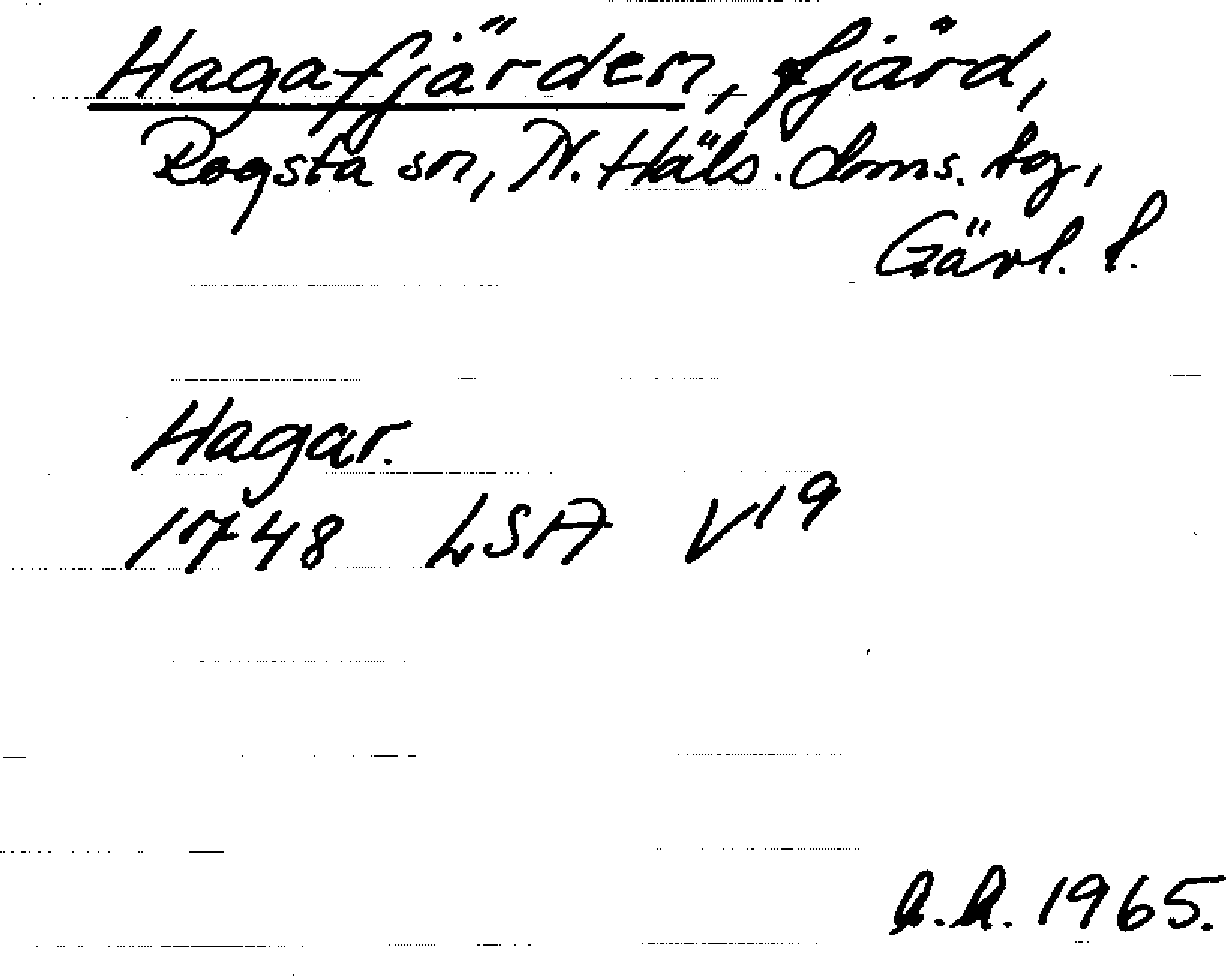 Hagafjärden, fjärd,
Rogsta sn, N. Häls. dms. tg,
Gävl. l.
Hagar.
1748 LSA V19
1965.